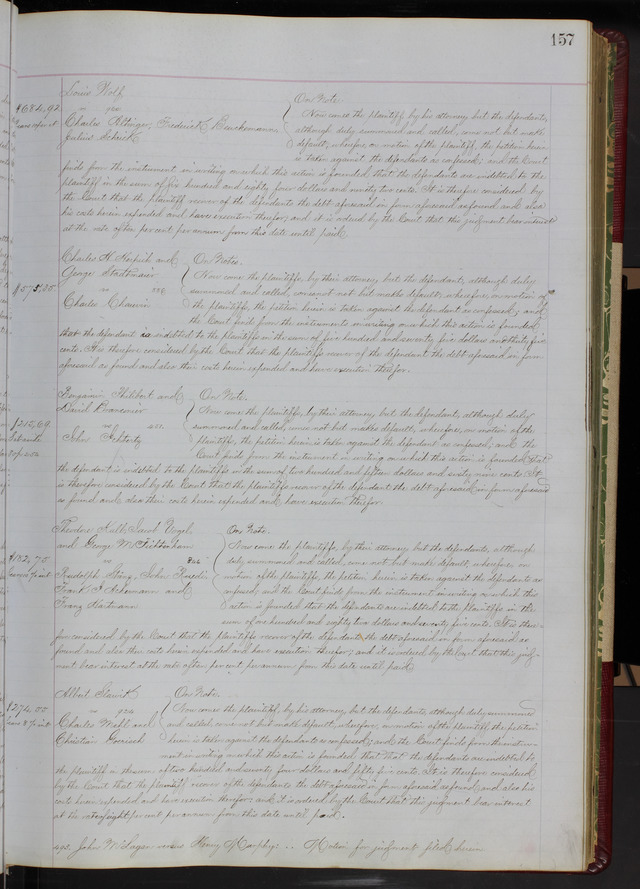 157
Louis Wolf
$684.92
vs
On Note.
Charles Frederick
Now comes the plaintiff by his attorney, but the defendants,
Julius
although duly summoned and called, come not but make
default; wherefore, on motion of the plaintiff, the petition herein
is taken against the defendants as confessed; and the Court
finds from the instrument in writing on which this action is founded, that the defendants are indebted to the
plaintiff in the sum of six hundred and eighty four dollars and ninety two cents. It is therefore considered by
the Court that the plaintiff recover of the defendants the debt aforesaid in form aforesaid as found and also
his costs herein expended and have execution therefor; and it is ordered by the Court that this judgment bear interest
at the rate of ten per cent per annum from this date until paid.
Charles H. and
On Notes.
George
Now come the plaintiffs, by their attorney, but the defendant, although duly
vs
summoned and called, comes not but makes default; wherefore, on motion of
Charles Chauvin
the plaintiffs, the petition herein is taken against the defendant as confessed; and
the Court finds from the instruments in writing on which this action is founded
that the defendant is indebted to the plaintiffs in the sum of five hundred and seventy five dollars and
cents. It is therefore considered by the Court that the plaintiffs recover of the defendant the debt aforesaid in form
aforesaid as found and also their costs herein expended and have execution therefor.
Benjamin and
On Note.
David
Now come the plaintiffs, by their attorney, but the defendant, although duly
$215.69
vs
summoned and called, comes not but makes default; wherefore, on motion of the
John
plaintiffs, the petition herein is taken against the defendant as confessed; and the
Court finds from the instrument in writing on which this action is founded, that
the defendant is indebted to the plaintiffs in the sum of two hundred and fifteen dollars and sixty nine cents. It
is therefore considered by the Court that the plaintiffs recover of the defendant the debt aforesaid in form aforesaid
as found and also their costs herein expended and have execution therefor.
Theodore Hall,
On Note.
and George W.
Now come the plaintiffs, by their attorney but the defendants, although
$182.75
vs
duly summoned and called, come not but make default; wherefore on
Rudolph John
motion of the plaintiffs, the petition herein is taken against the defendants as
Frank and
confessed; and the Court finds from the instrument in writing on which this
Franz Hartmann
action is founded that the defendants are indebted to the plaintiffs in the
sum of one hundred and eighty two dollars and seventy five cents. It is there-
fore considered by the Court that the plaintiffs recover of the defendants the debt aforesaid in form aforesaid as
found and also their costs herein expended and have execution therefor; and it is ordered by the Court that this judg-
ment bear interest at the rate of ten per cent per annum from this date until paid.
Albert
On Note.
$274.55
vs
Now comes the plaintiff, by his attorney, but the defendants, although duly summoned
Charles and
and called, come not but make default; wherefore, on motion of the plaintiff, the petition
Christian
herein is taken against the defendants as confessed; and the Court finds from the instru-
ment in writing on which this action is founded that that the defendants are indebted to
the plaintiff in the sum of two hundred and seventy four dollars and fifty five cents. It is therefore considered
by the Court that the plaintiff recover of the defendants the debt aforesaid in form aforesaid as found; and also his
costs herein expended and have execution therefor; and it is ordered by the Court that this judgment bear interest
at the rate of eight per cent per annum from this date until paid.
John versus Henry Murphy. Motion for judgment filed herein